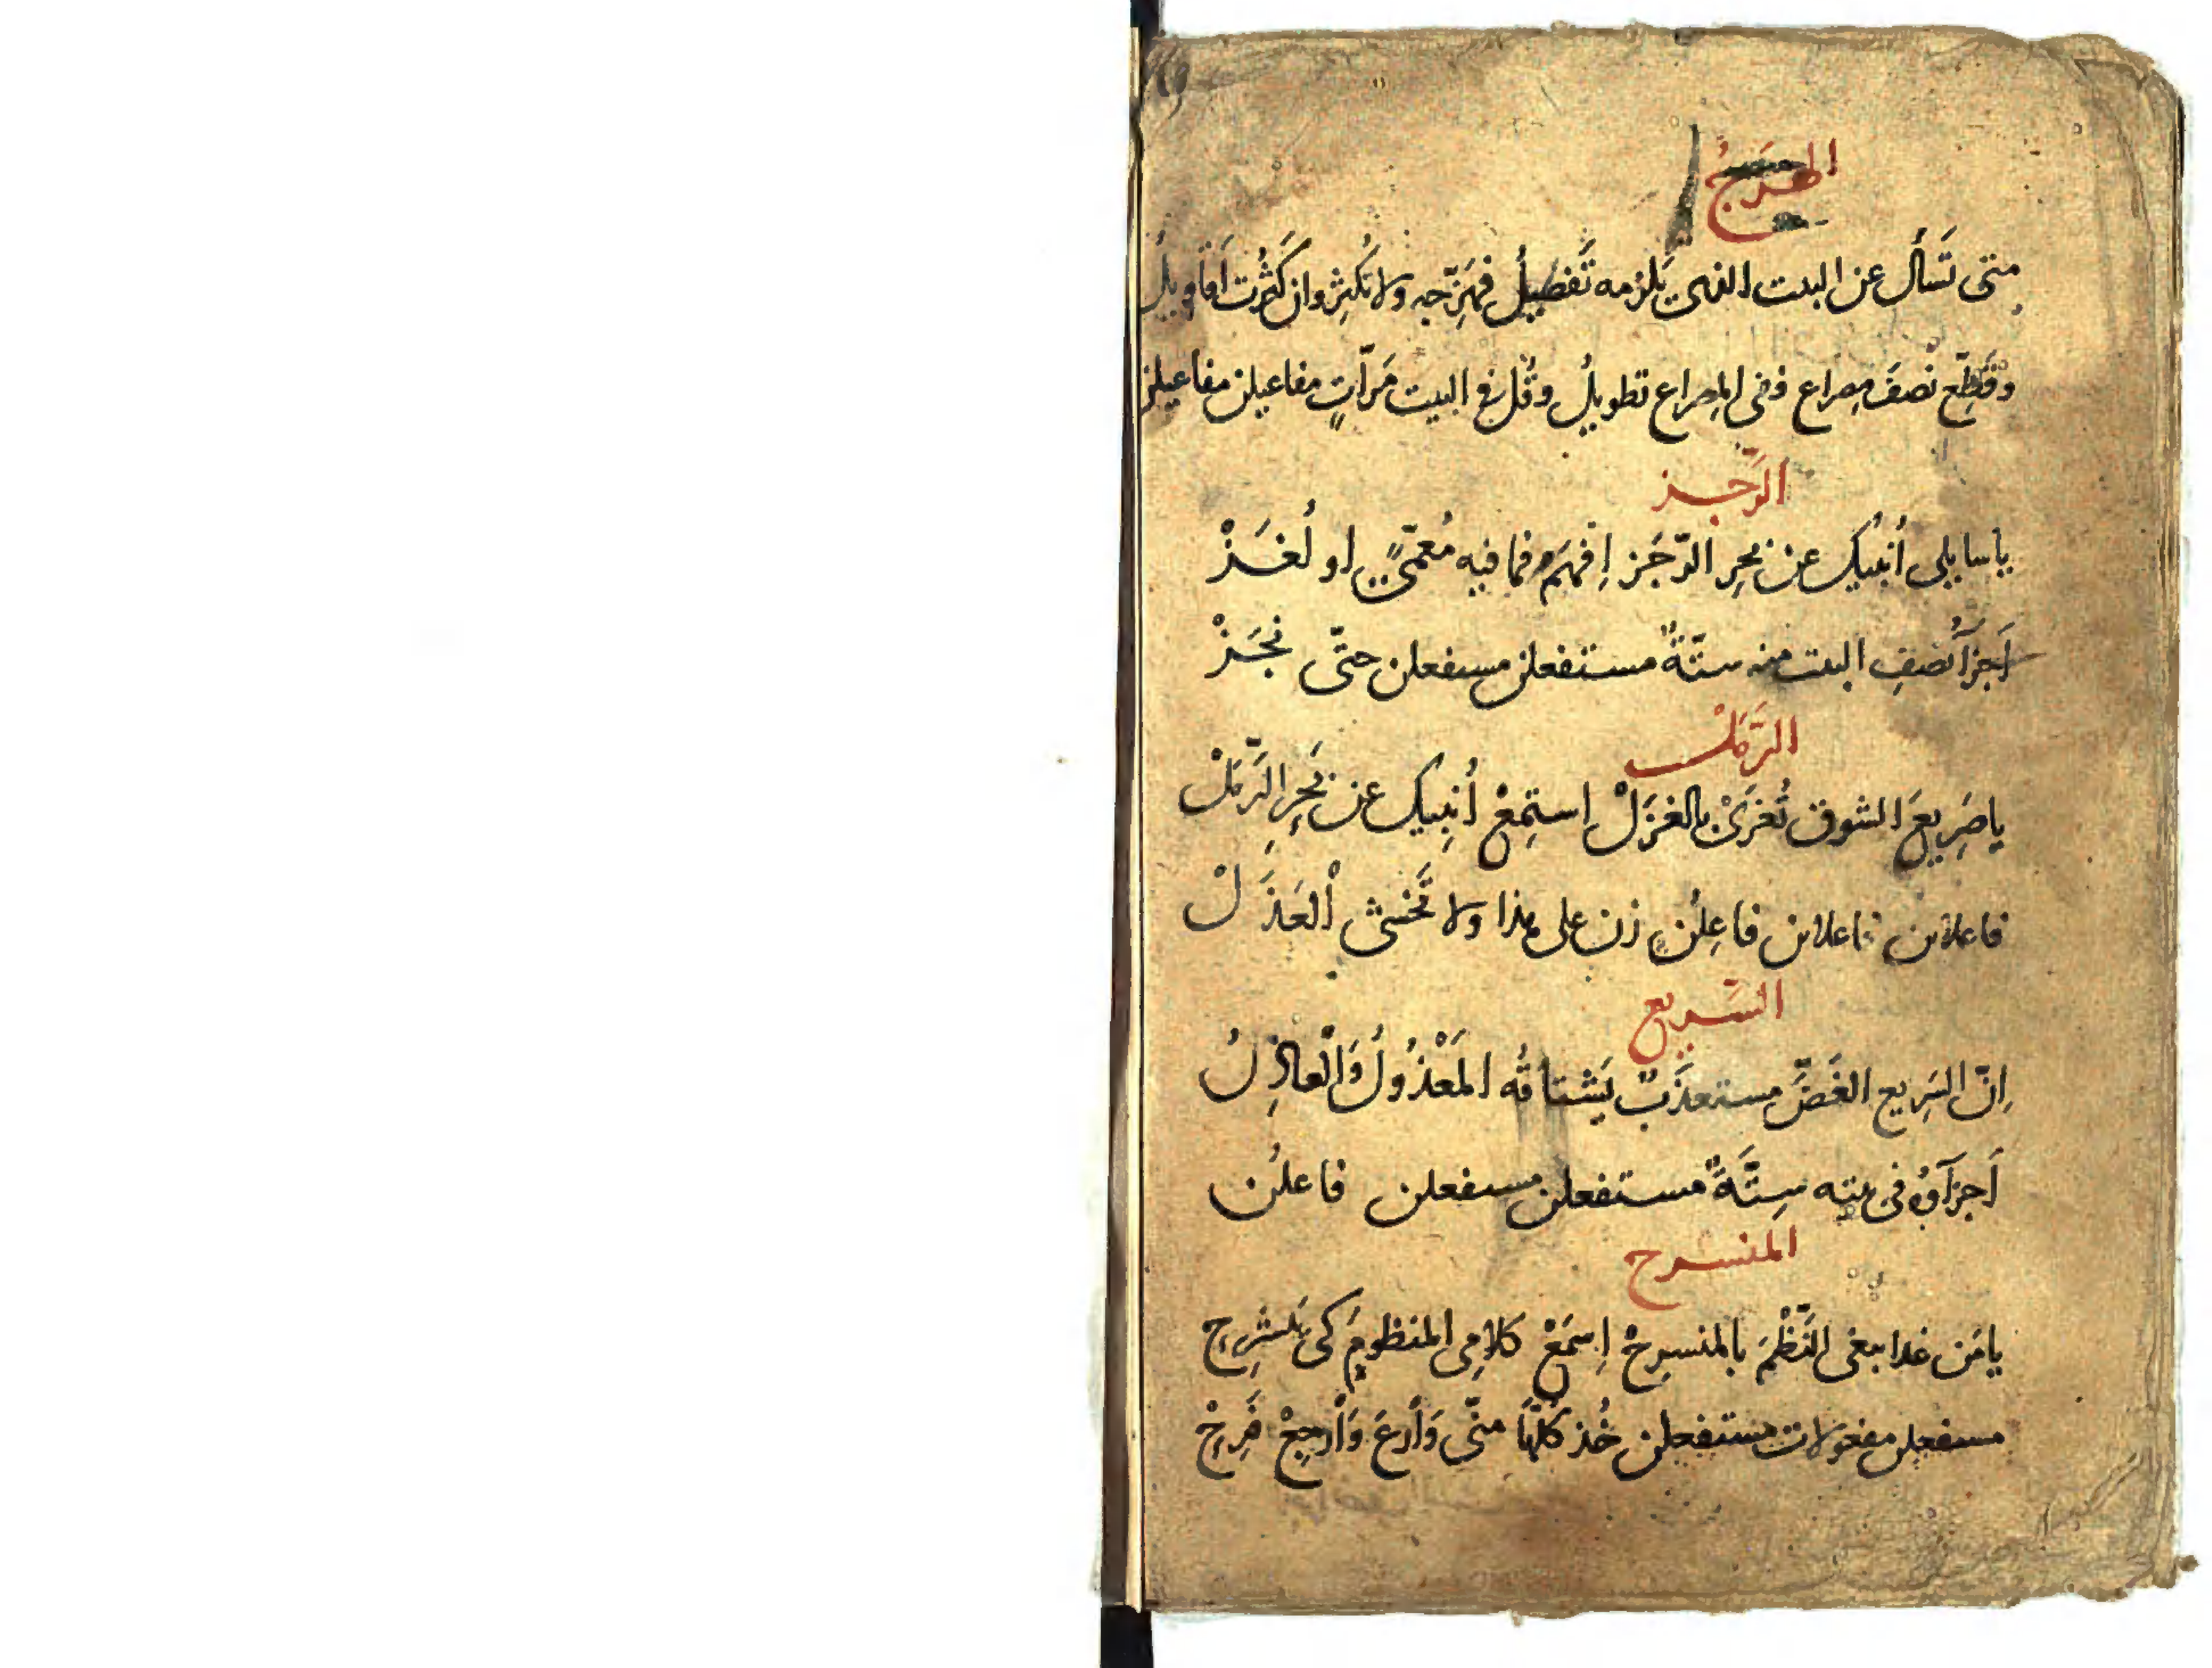 الهَزَجُ
متى تَسأل عن البيت الذى يَلزمه تَفصيلُ فهَزّجه ولا تُكثِر وان كَثُرت أقاويلُ
وقَطِّع نصفَ مِصراع ففى المِصراع تطويلُ وقُل فى البيت مَرّاتٍ مفاعيلن مفاعيلن
الرَّجَز
يا سايلى أُنبيك عن بحرِ الرّجَز اِفهَم فما فيه مُعمّىً او لُغَزْ
أَجزآ نصفِ البيت منه ستّةٌ مستفعلن مستفعلن حتّى نجَزْ
الرَّمَلْ
يا صَرِيعَ الشوق تُغرَىْ بالغَزَلْ اِستمِعْ أُنبِيك عن بَحرِ الرَّمَلْ
فاعلاتن فاعلاتن فاعِلُن زن على هذا ولا تَخشى اْلعَذَلْ
السَّريع
اِنّ السَرِيع الغَضَّ مستعذَبٌ يَشتاقُه المَعْذُولُ وَاْلعاذِلُ
أَجزآوُه فى بيته سِتَّةٌ مستفعلن مستفعلن فاعلُن
المنسرح
يا مَن غدا يبغى النَّظْمَ بالمنسرِحْ اِسمَعْ كلامِى المنظومَ كى تَنشرِح
مستفعلن مفعولات مستفعلن خُذ كُلّهَا منّى وَاْرعَ وَاْرجِعْ فَرِحْ